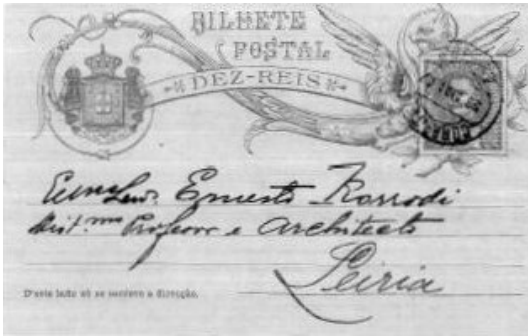 BILHETE
POSTAL
DEZ-REIS
Exmo Snr. Ernesto Korrodi
Dist.mo Professor e Architecto
Leiria
D'este lado só se escreve a direcção.